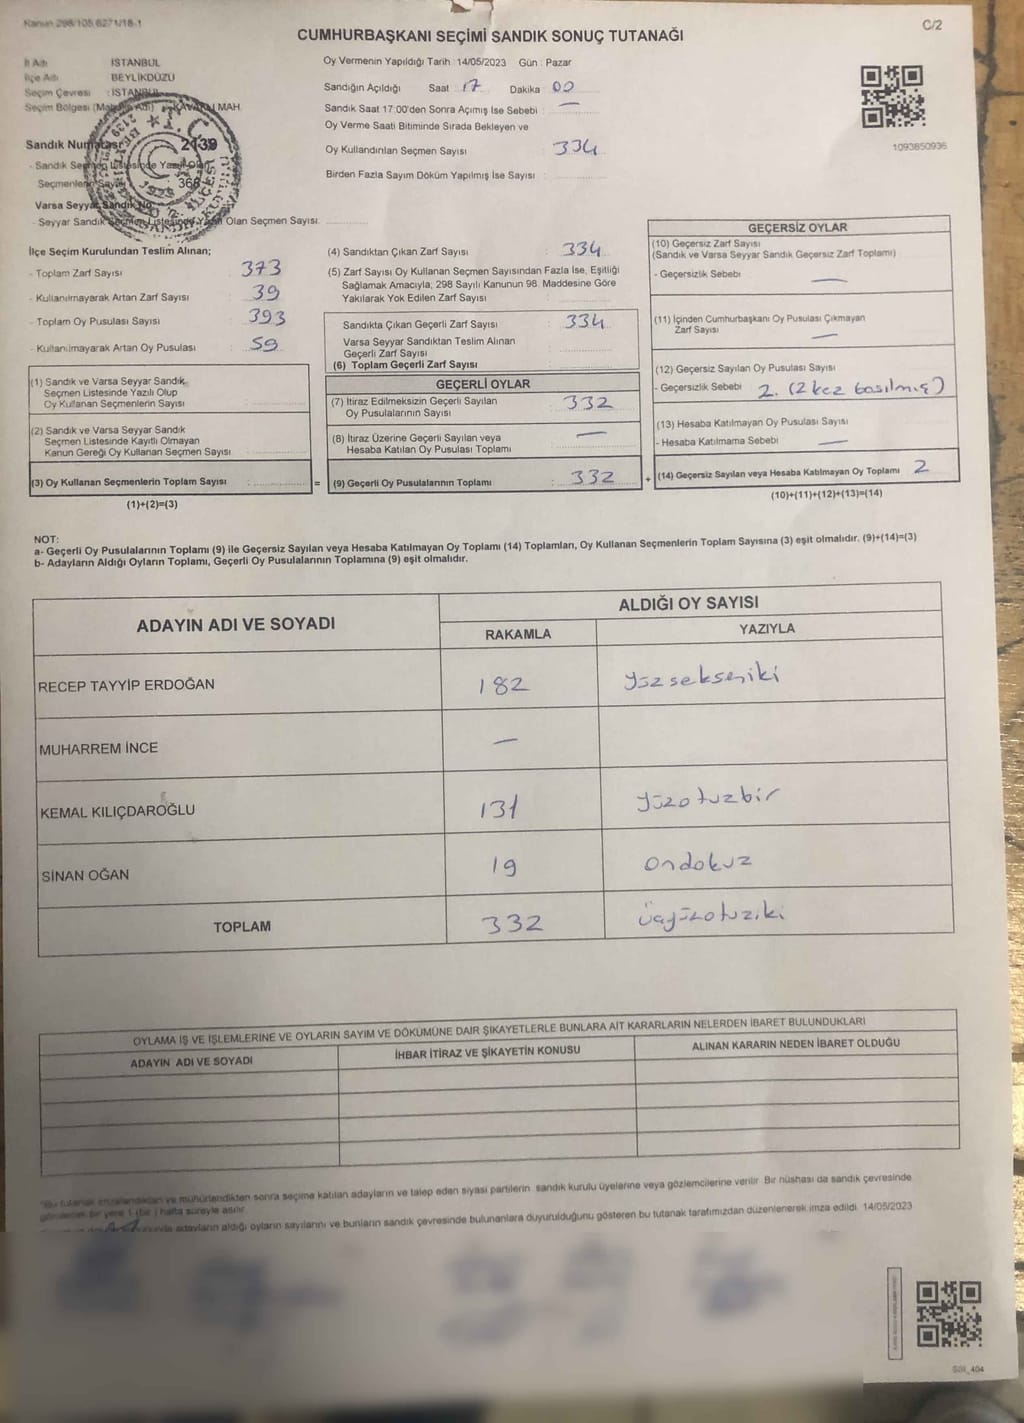 Kanun 298/105,6271/18-1
C/2
CUMHURBAŞKANI SEÇİMİ SANDIK SONUÇ TUTANAĞI
İl Adı : İSTANBUL
İlçe Adı : BEYLİKDÜZÜ
Seçim Çevresi : İSTANBUL
Seçim Bölgesi MAH
Sandık Numarası 2139
Varsa Seyyar Sandık No
Olan Seçmen Sayısı:
Oy Vermenin Yapıldığı Tarih : 14/05/2023 Gün : Pazar
Sandığın Açıldığı Saat 17 Dakika 00
Sandık Saat 17:00'den Sonra Açımış İse Sebebi : —
Oy Verme Saati Bitiminde Sırada Bekleyen ve
Oy Kullandırılan Seçmen Sayısı 334
Birden Fazla Sayım Döküm Yapılmış İse Sayısı
1093850936
İlçe Seçim Kurulundan Teslim Alınan;
- Toplam Zarf Sayısı : 373
- Kullanılmayarak Artan Zarf Sayısı : 39
- Toplam Oy Pusulası Sayısı : 393
- Kullanılmayarak Artan Oy Pusulası : 59
(1) Sandık ve Varsa Seyyar Sandık
Seçmen Listesinde Yazılı Olup
Oy Kullanan Seçmenlerin Sayısı
(2) Sandık ve Varsa Seyyar Sandık
Seçmen Listesinde Kayıtlı Olmayan
Kanun Gereği Oy Kullanan Seçmen Sayısı
(3) Oy Kullanan Seçmenlerin Toplam Sayısı : =
(1)+(2)=(3)
(4) Sandıktan Çıkan Zarf Sayısı : 334
(5) Zarf Sayısı Oy Kullanan Seçmen Sayısından Fazla İse, Eşitliği
Sağlamak Amacıyla; 298 Sayılı Kanunun 98. Maddesine Göre
Yakılarak Yok Edilen Zarf Sayısı
Sandıkta Çıkan Geçerli Zarf Sayısı : 334
Varsa Seyyar Sandıktan Teslim Alınan
Geçerli Zarf Sayısı
(6) Toplam Geçerli Zarf Sayısı
GEÇERLİ OYLAR
(7) İtiraz Edilmeksizin Geçerli Sayılan
Oy Pusulalarının Sayısı : 332
(8) İtiraz Üzerine Geçerli Sayılan veya
Hesaba Katılan Oy Pusulası Toplamı —
(9) Geçerli Oy Pusulalarının Toplamı : 332 +
GEÇERSİZ OYLAR
(10) Geçersiz Zarf Sayısı
(Sandık ve Varsa Seyyar Sandık Geçersiz Zarf Toplamı)
- Geçersizlik Sebebi : —
(11) İçinden Cumhurbaşkanı Oy Pusulası Çıkmayan
Zarf Sayısı —
(12) Geçersiz Sayılan Oy Pusulası Sayısı
- Geçersizlik Sebebi 2. (2 kez basılmış)
(13) Hesaba Katılmayan Oy Pusulası Sayısı
- Hesaba Katılmama Sebebi —
(14) Geçersiz Sayılan veya Hesaba Katılmayan Oy Toplamı 2
(10)+(11)+(12)+(13)=(14)
NOT:
a- Geçerli Oy Pusulalarının Toplamı (9) ile Geçersiz Sayılan veya Hesaba Katılmayan Oy Toplamı (14) Toplamları, Oy Kullanan Seçmenlerin Toplam Sayısına (3) eşit olmalıdır. (9)+(14)=(3)
b- Adayların Aldığı Oyların Toplamı, Geçerli Oy Pusulalarının Toplamına (9) eşit olmalıdır.
ADAYIN ADI VE SOYADI
ALDIĞI OY SAYISI
RAKAMLA YAZIYLA
RECEP TAYYİP ERDOĞAN 182 yüzsekseniki
MUHARREM İNCE —
KEMAL KILIÇDAROĞLU 131 yüzotuzbir
SİNAN OĞAN 19 ondokuz
TOPLAM 332 üçyüzotuziki
OYLAMA İŞ VE İŞLEMLERİNE VE OYLARIN SAYIM VE DÖKÜMÜNE DAİR ŞİKAYETLERLE BUNLARA AİT KARARLARIN NELERDEN İBARET BULUNDUKLARI
ADAYIN ADI VE SOYADI İHBAR İTİRAZ VE ŞİKAYETİN KONUSU ALINAN KARARIN NEDEN İBARET OLDUĞU
"Bu tutanak imzalandıktan ve mühürlendikten sonra seçime katılan adayların ve talep eden siyasi partilerin sandık kurulu üyelerine veya gözlemcilerine verilir. Bir nüshası da sandık çevresinde
görülecek bir yere 1 (bir) hafta süreyle asılır.
adayların aldığı oyların sayılarını ve bunların sandık çevresinde bulunanlara duyurulduğunu gösteren bu tutanak tarafımızdan düzenlenerek imza edildi. 14/05/2023